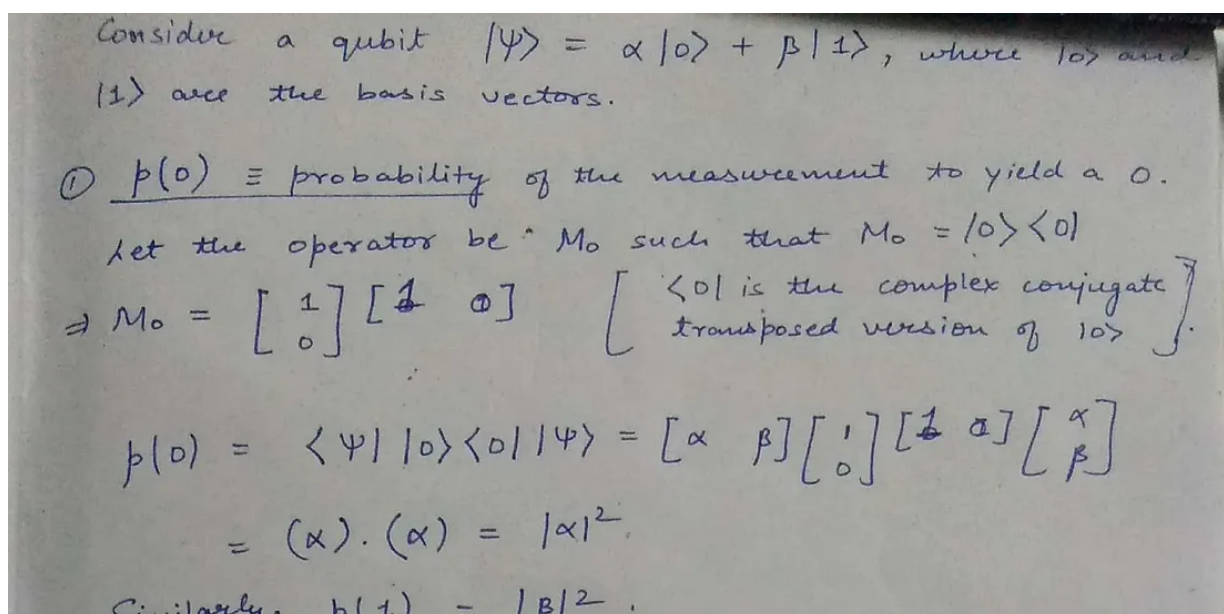 Consider a qubit |ψ> = α|0> + β|1>, where |0> and
|1> are the basis vectors.
① p(0) ≡ probability of the measurement to yield a 0.
Let the operator be M₀ such that M₀ = |0><0|
⇒ M₀ = [1 0] [1 0] [<0| is the complex conjugate transposed version of |0>].
p(0) = <ψ| |0><0| |ψ> = [α β] [1 0] [1 0] [α β]
= (α).(α) = |α|².
Similarly, p(1) = |β|².